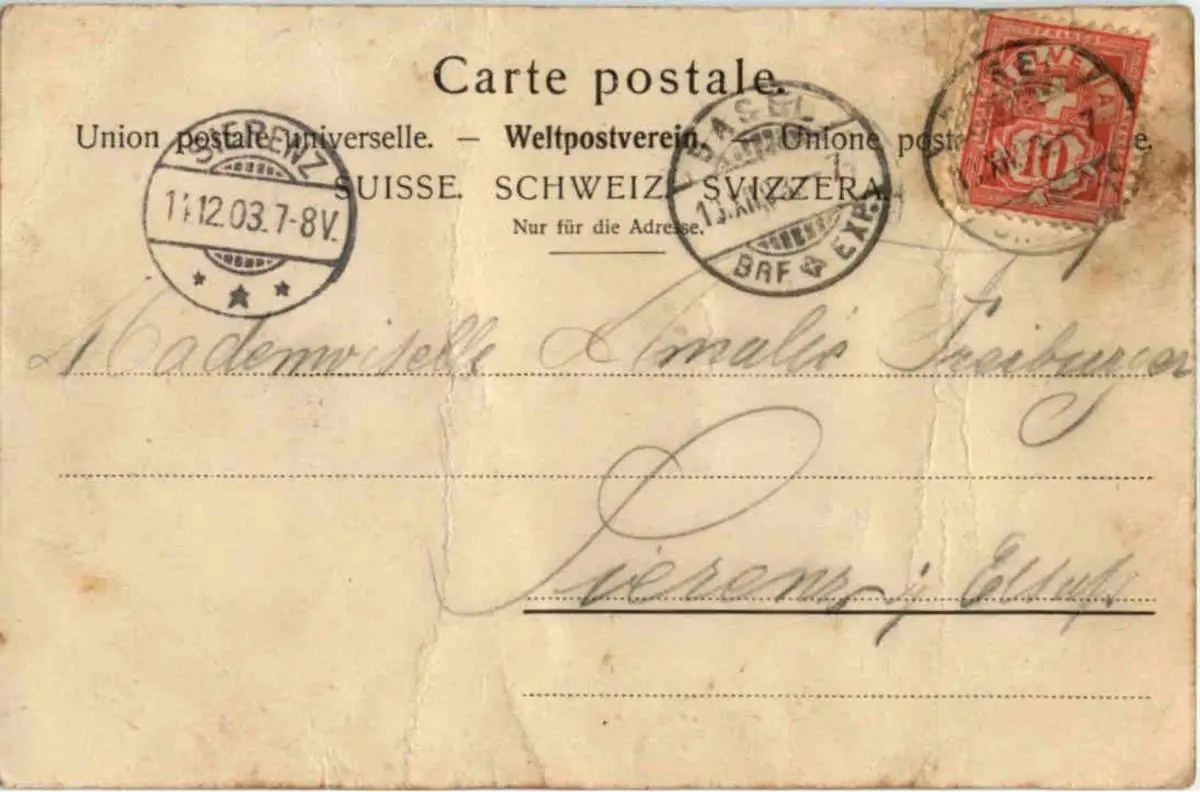 Carte postale.
Union postale universelle. — Weltpostverein. — Unione postale
SUISSE. SCHWEIZ. SVIZZERA.
Nur für die Adresse.
SIERENZ
11.12.03.7-8V.
BASEL
BRF. EXP.
HELVETIA
10
Mademoiselle Amalie Freiburger
Sierenz i/ Elsaß